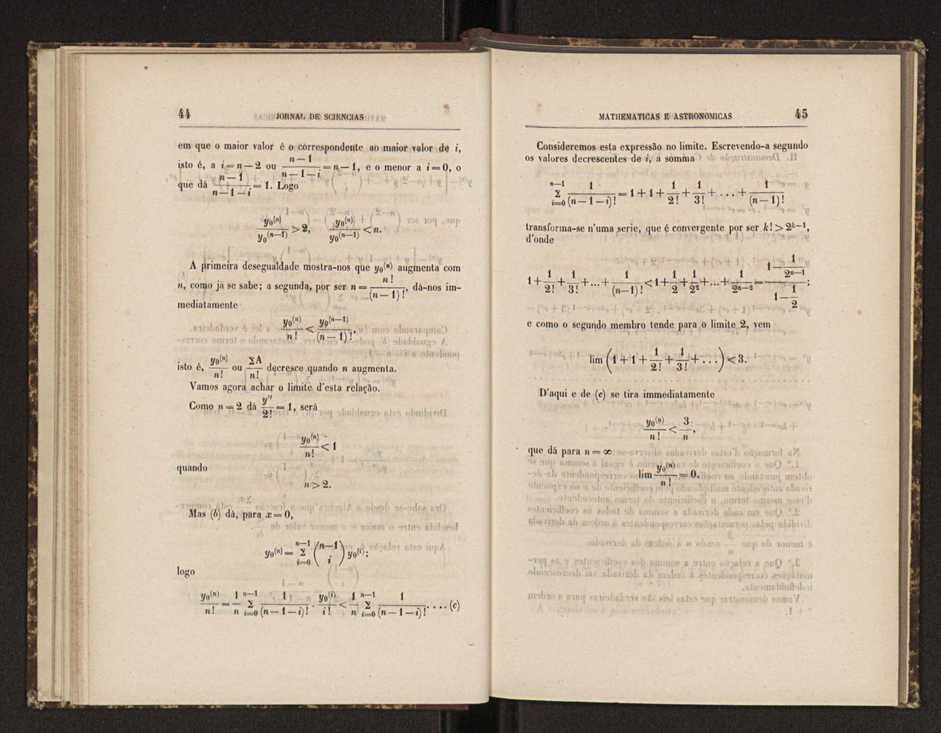 44 JORNAL DE SCIENCIAS
em que o maior valor é o correspondente ao maior valor de i,
isto é, a i = n − 2 ou (n − 1)/(n − 1 − i) = n − 1, e o menor a i = 0, o
que dá (n − 1)/(n − 1 − i) = 1. Logo
y₀⁽ⁿ⁾/y₀⁽ⁿ⁻¹⁾ > 2, y₀⁽ⁿ⁾/y₀⁽ⁿ⁻¹⁾ < n.
A primeira desegualdade mostra-nos que y₀⁽ⁿ⁾ augmenta com
n, como já se sabe; a segunda, por ser n = n!/(n − 1)!, dá-nos im-
mediatamente
y₀⁽ⁿ⁾/n! < y₀⁽ⁿ⁻¹⁾/(n − 1)!,
isto é, y₀⁽ⁿ⁾/n! ou ΣA/n! decresce quando n augmenta.
Vamos agora achar o limite d'esta relação.
Como n = 2 dá y''/2! = 1, será
y₀⁽ⁿ⁾/n! < 1
quando
n > 2.
Mas (b) dá, para x = 0,
y₀⁽ⁿ⁾ = Σ_{i=0}^{n−1} (n−1 / i) y₀⁽ⁱ⁾;
logo
y₀⁽ⁿ⁾/n! = 1/n Σ_{i=0}^{n−1} 1/(n − 1 − i)! . y₀⁽ⁱ⁾/i! < 1/n Σ_{i=0}^{n−1} 1/(n − 1 − i)! . . . . (c)
MATHEMATICAS E ASTRONOMICAS 45
Consideremos esta expressão no limite. Escrevendo-a segundo
os valores decrescentes de i, a somma
Σ_{i=0}^{n−1} 1/(n − 1 − i)! = 1 + 1 + 1/2! + 1/3! + . . . + 1/(n − 1)!
transforma-se n'uma serie, que é convergente por ser k! > 2ᵏ⁻¹,
d'onde
1 + 1/2! + 1/3! + ... + 1/(n−1)! < 1 + 1/2 + 1/2² + ... + 1/2ⁿ⁻² = (1 − 1/2ⁿ⁻¹)/(1 − 1/2);
e como o segundo membro tende para o limite 2, vem
lim (1 + 1 + 1/2! + 1/3! + . . .) < 3.
D'aqui e de (c) se tira immediatamente
y₀⁽ⁿ⁾/n! < 3/n,
que dá para n = ∞
lim y₀⁽ⁿ⁾/n! = 0.